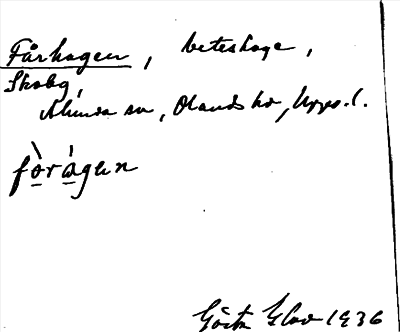 Fårhagen, beteshage,
Skoby,
Alunda sn, Olands hd, Upps. l.
fòrágen
Gösta Elov 1936